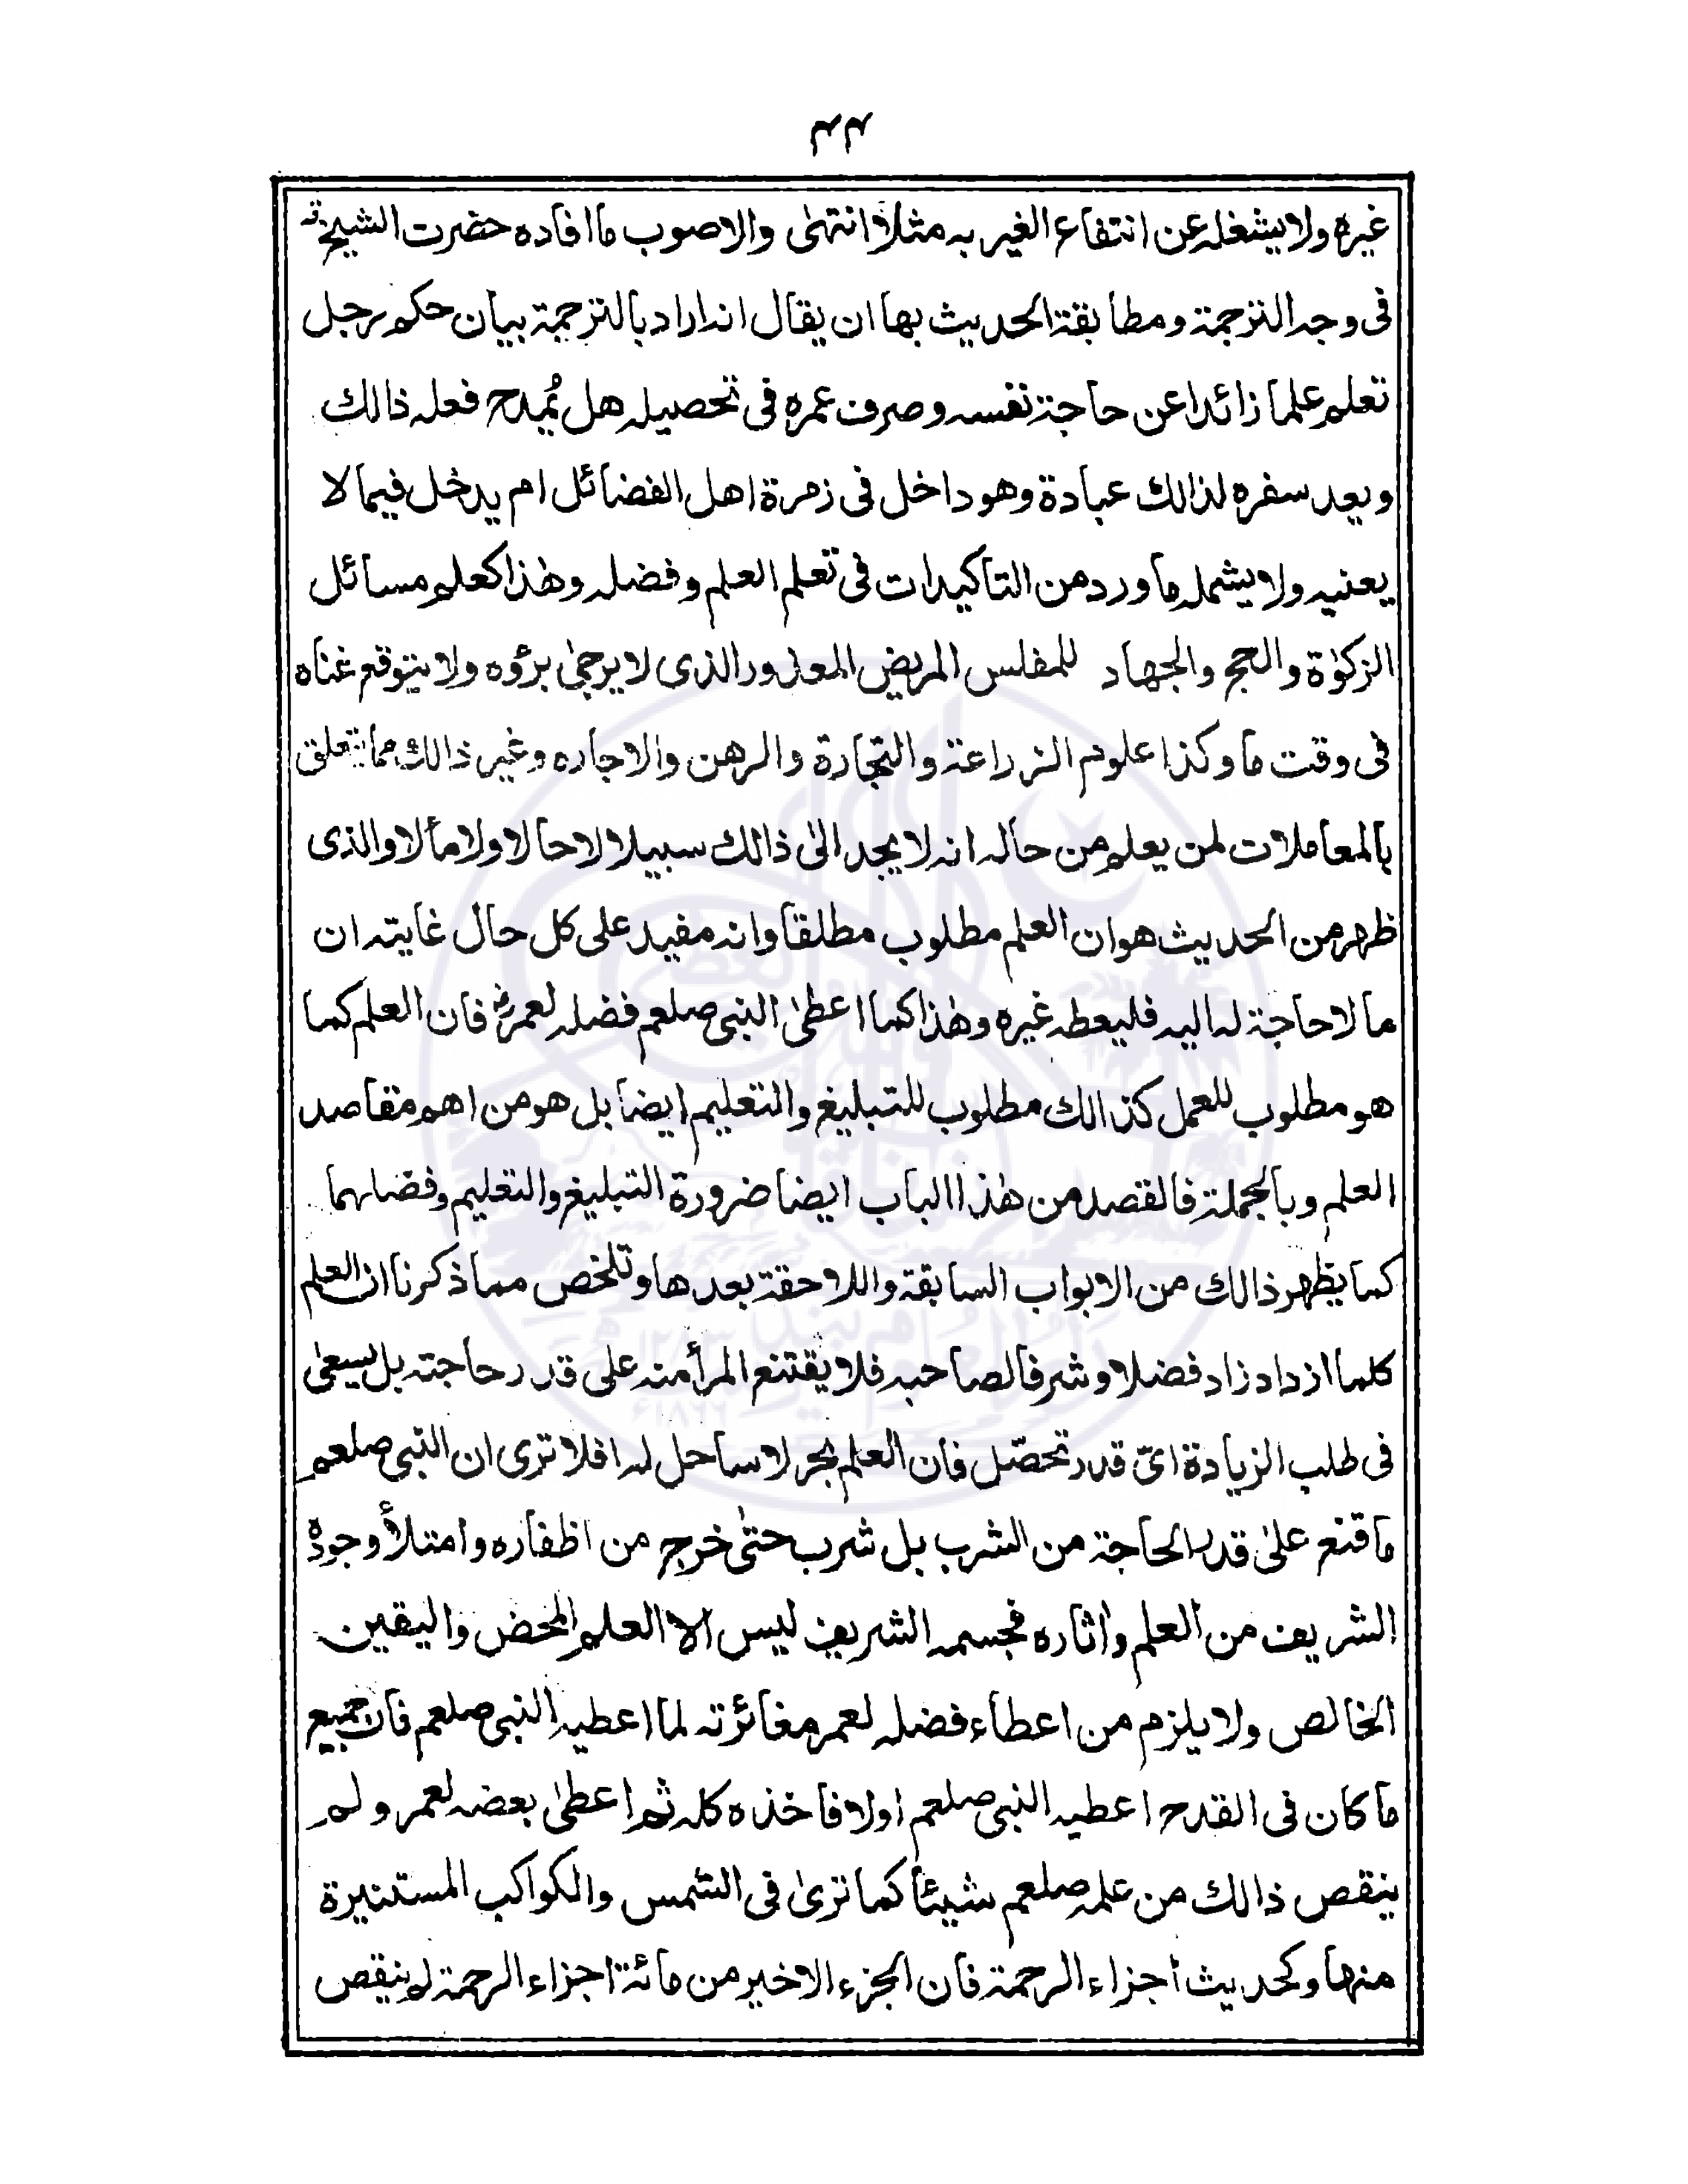 ۴۴
غیره ولا یشغله عن انتفاع الغیر به مثلا انتهی والاصوب ما افاده حضرت الشیخ قد
فی وجه الترجمة ومطابقة الحدیث بها ان یقال انه اراد بالترجمة بیان حکم رجل
تعلم علما زائدا عن حاجة نفسه وصرف عمره فی تحصیله هل یُمدح فعله ذالك
ویعد سفره لذالك عبادة وهو داخل فی زمرة اهل الفضائل ام یدخل فیما لا
یعنیه ولا یشمله ما ورد من التاکیدات فی تعلم العلم وفضله وهٰذا کعلم مسائل
الزکوٰة والحج والجهاد للمفلس المریض المعذور الذی لا یرجیٰ برؤه ولا یتوقع غناه
فی وقت ما وکذا علوم الزراعة والتجارة والرهن والاجاره وغیر ذالك مما یتعلق
بالمعاملات لمن یعلم من حاله انه لا یجد الیٰ ذالك سبیلا لا حالا ولا مألا والذی
ظهر من الحدیث هو ان العلم مطلوب مطلقا وانه مفید علی کل حال غایته ان
ما لا حاجة له الیه فلیعطه غیره وهٰذا کما اعطیٰ النبی صلعم فضله لعمرؓ فان العلم کما
هو مطلوب للعمل کذالك مطلوب للتبلیغ والتعلیم ایضا بل هو من اهم مقاصد
العلم وبالجملة فالقصد من هٰذا الباب ایضا ضرورة التبلیغ والتعلیم وفضلهما
کما یظهر ذالك من الابواب السابقة واللاحقة بعدها وتلخص مما ذکرنا ان العلم
کلما ازداد زاد فضلا وشرفا لصاحبه فلا یقتنع المرأ منه علی قدر حاجته بل یسعیٰ
فی طلب الزیادة ایّ قدر تحصّل فان العلم بحر لا ساحل له افلا تری ان النبی صلعم
ما قنع علیٰ قدر الحاجة من الشرب بل شرب حتیٰ خرج من اظفاره وامتلأ وجوده
الشریف من العلم واٰثاره فجسمه الشریف لیس الا العلم المحض والیقین
الخالص ولا یلزم من اعطاء فضله لعمر مغائرته لما اعطیه النبی صلعم فان جمیع
ما کان فی القدح اعطیه النبی صلعم اولا فاخذه کله ثم اعطیٰ بعضه لعمر ولم
ینقص ذالك من علمه صلعم شیئا کما تریٰ فی الشمس والکواکب المستنیرة
منها وکحدیث اجزاء الرحمة فان الجزء الاخیر من مائة اجزاء الرحمة لم ینقص